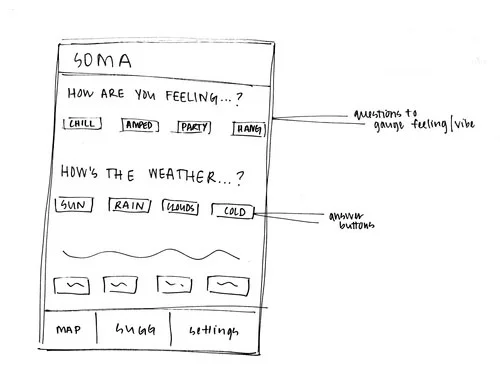 SOMA
HOW ARE YOU FEELING...?
CHILL AMPED PARTY HANG
questions to
gauge feeling/vibe
HOW'S THE WEATHER...?
SUN RAIN CLOUDS COLD
answer
buttons
MAP SUGG settings